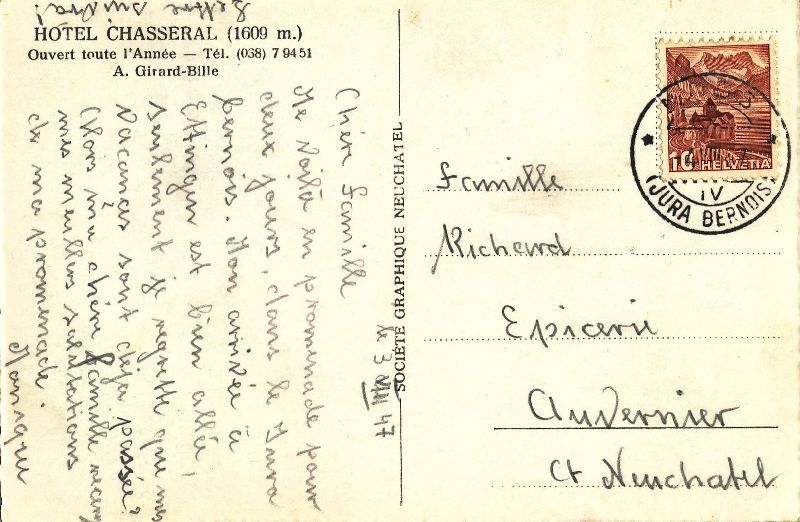 HOTEL CHASSERAL (1609 m.)
Ouvert toute l'Année — Tél. (038) 7 94 51
A. Girard-Bille
le 3 VIII 47
Chère famille
Me voilà en promenade pour
deux jours, dans le Jura
bernois. Mon arrivée à
Ettingen est bien allée,
seulement je regrette que mes
vacances sont déja passée!
Alors ma chère famille recevez
mes meilleurs salutations
de ma promenade.
SOCIÉTÉ GRAPHIQUE NEUCHATEL
Famille
Richard
Epicerie
Auvernier
Ct Neuchatel
10 HELVETIA
IV
(JURA BERNOIS)